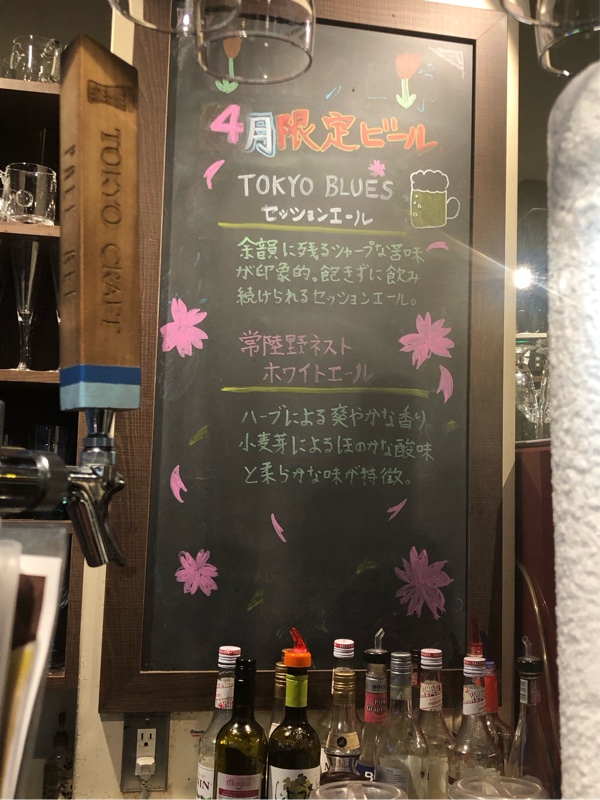 4月限定ビール
TOKYO BLUES
セッションエール
余韻に残るシャープな苦味
が印象的。飽きずに飲み
続けられるセッションエール。
常陸野ネスト
ホワイトエール
ハーブによる爽やかな香り
小麦芽によるほのかな酸味
と柔らかな味が特徴。
TOKYO CRAFT
PALE ALE